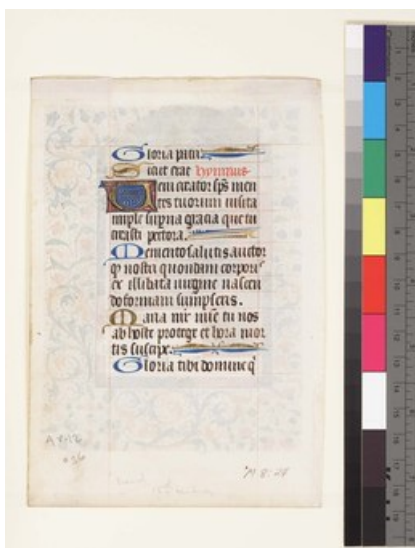 Gloria patri
Sicut erat hymnus
Veni creator sps̄ men
tes tuorum visita
imple superna gracia que tu
creasti pectora.
Memento salutis auctor
qȝ nostri quondam corporis
ex illibata virgine nascen
do formam sumpseris.
Maria mr̄ nūc tu nos
ab hoste protege et hora mor
tis suscipe.
Gloria tibi domine qͥ